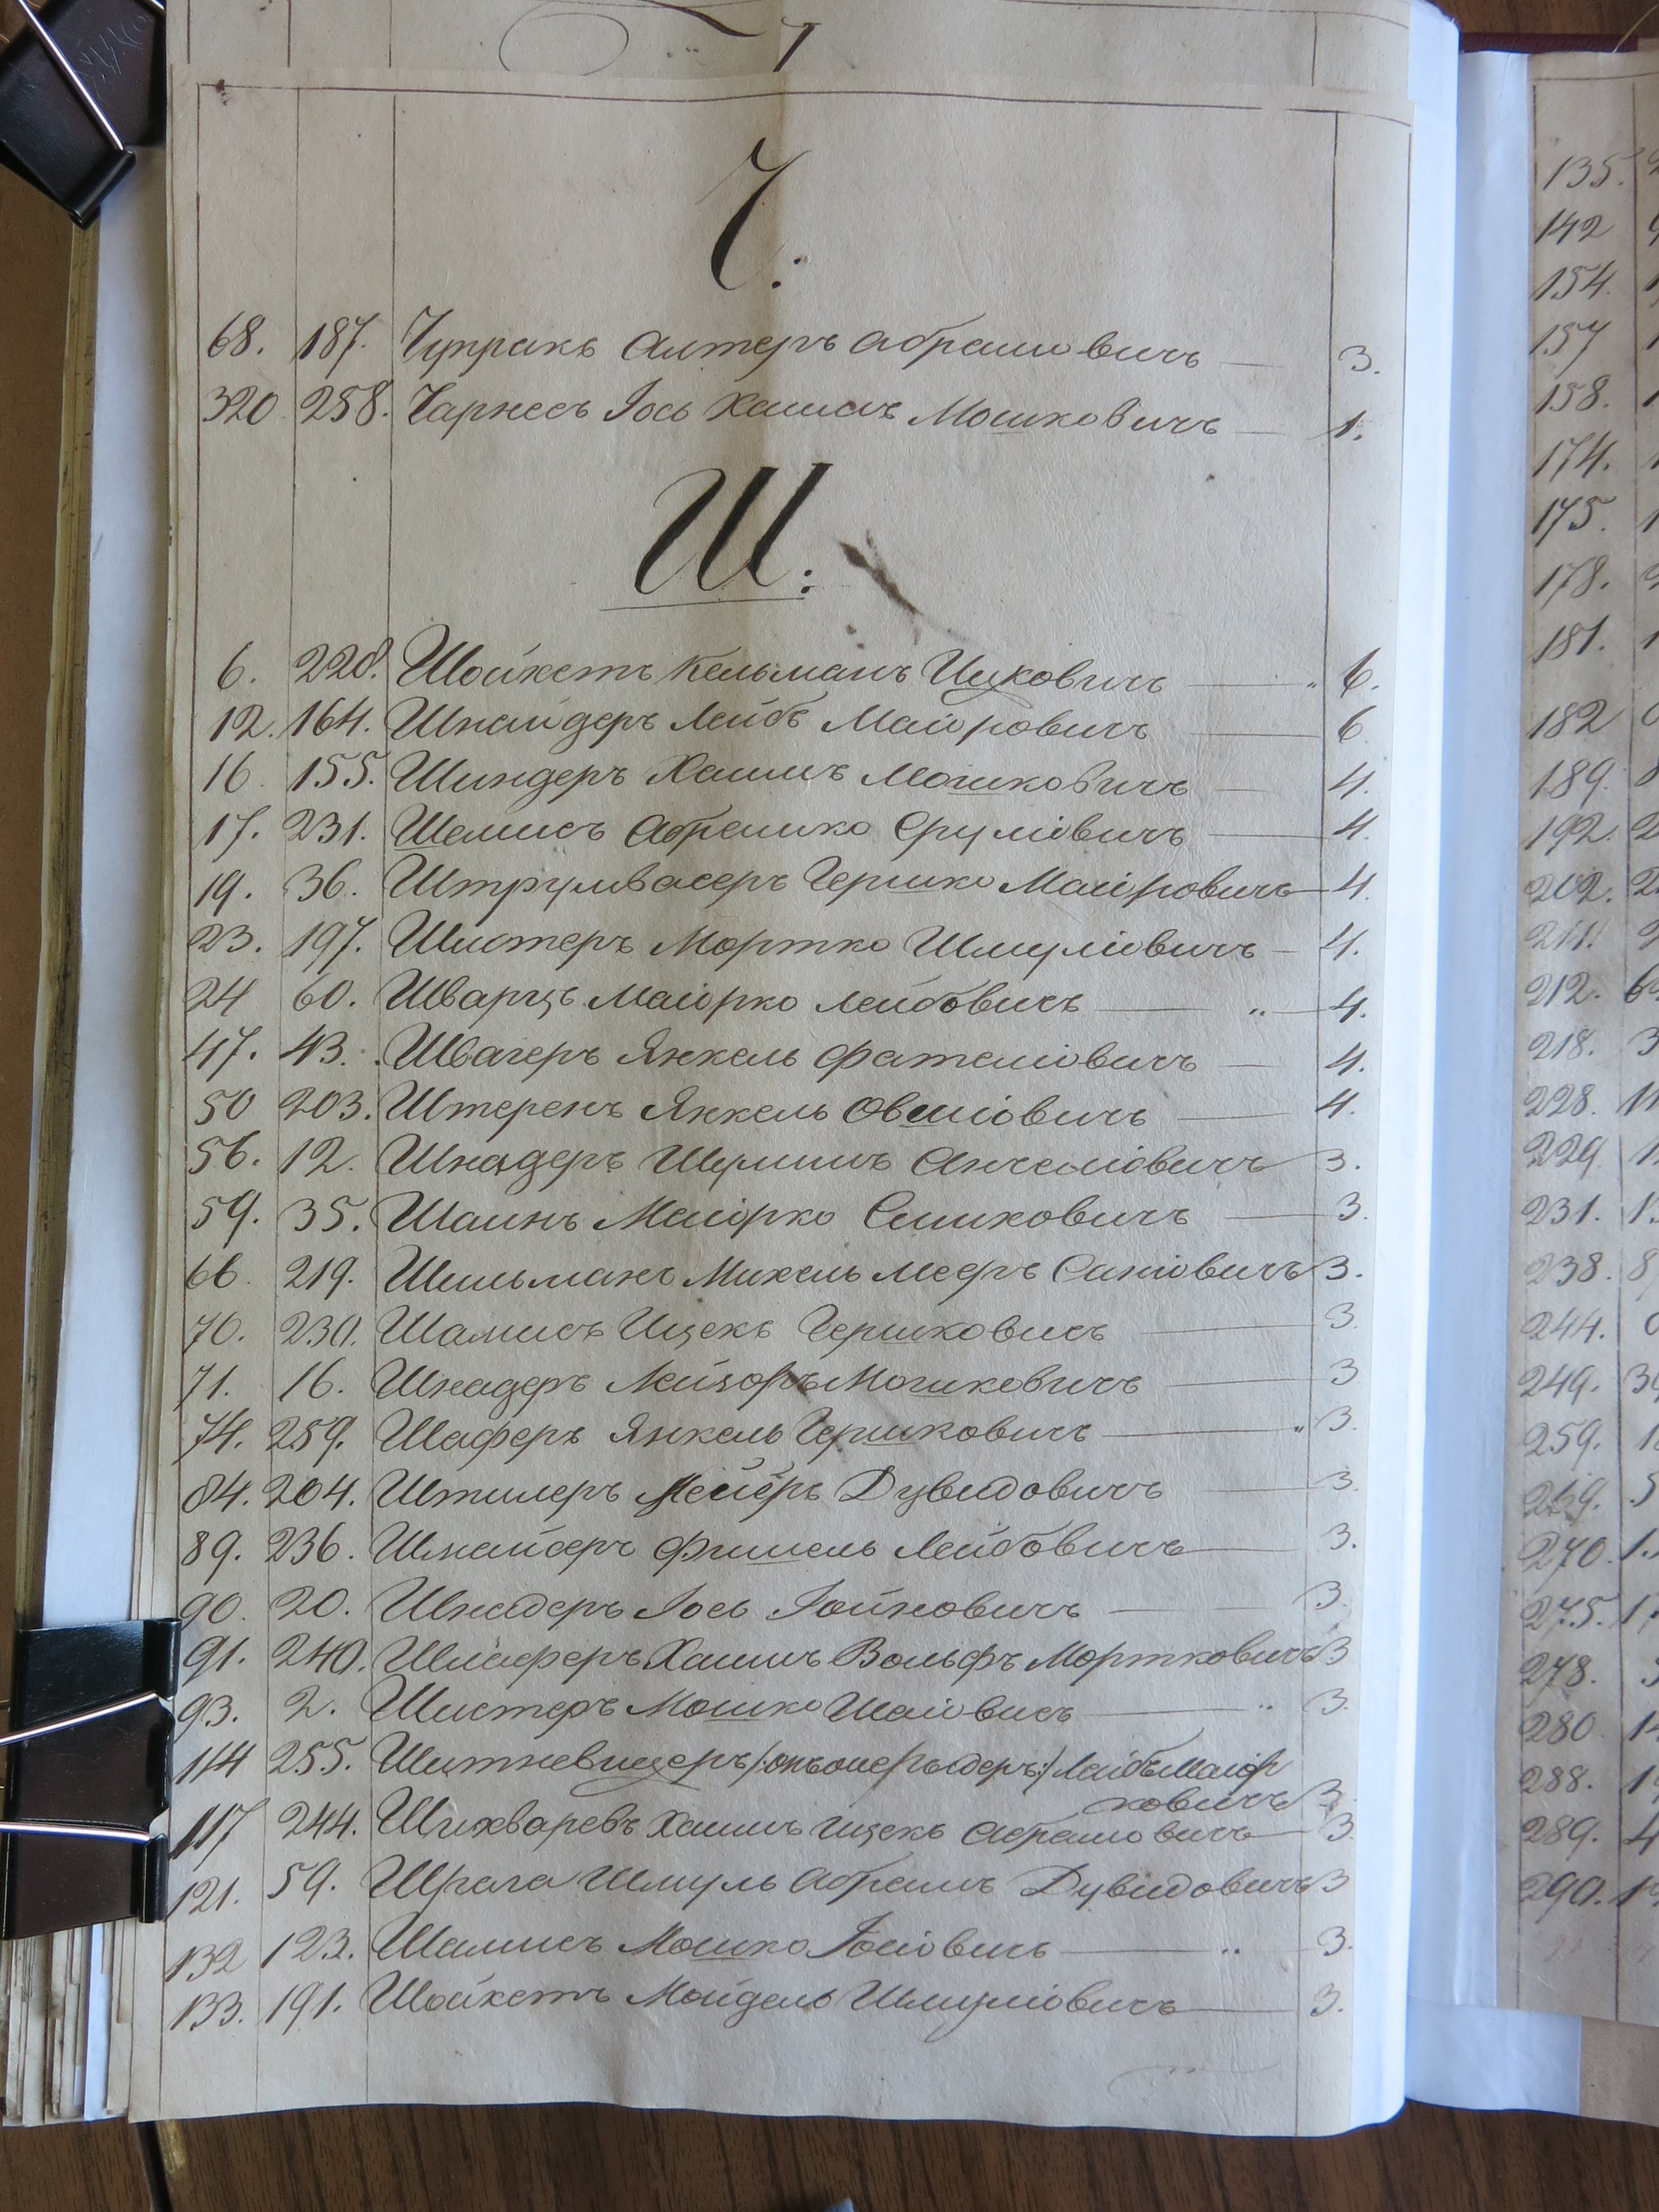 Ч.
68. 187. Чупракъ Алтеръ Абрамовичъ — 3.
320. 258. Чарнесъ Іось Хаимъ Мошковичъ — 1.
Ш.
6. 228. Шойхетъ Кельманъ Ицковичъ — „ 6.
12. 164. Шнайдеръ Лейбъ Маіоровичъ — 6
16 155. Шиндеръ Хаимъ Мошковичъ — 4.
17. 231. Шамисъ Абрамко Сруліовичъ — 4.
19. 36. Штрумвасеръ Гершко Маіоровичъ — 4.
23. 197. Шустеръ Мортко Шмуліовичъ — 4.
24 60. Шварцъ Маіорко Лейбовичъ — „ — 4.
47. 43. Швагеръ Янкель — 4.
50 203. Штеренъ Янкель Овшіовичъ — 4.
56. 12. Шнадеръ Шулимъ Анчеліовичъ 3.
59. 35. Шаинъ Маіорко — 3.
66. 219. Шильманъ Михель Мееръ 3.
70. 230. Шамисъ Ицекъ Гершковичъ — 3.
71. 16. Шнадеръ Лейзоръ Мошковичъ — 3
74. 259. Шаферъ Янкель Гершковичъ — „ 3.
84. 204. Штилеръ Мейеръ Дувидовичъ — 3.
89. 236. Шнайдеръ Фишель Лейбовичъ — 3.
90. 20. Шнадеръ Іось Іойновичъ — 3.
91. 240. Шлаферъ Хаимъ Вольфъ Мортковичъ 3
93. 2. Шустеръ Мошко Шаіовичъ — „ 3.
114 255. Лейбъ Маіор
ковичъ 3.
117 244. Хаимъ Ицекъ Абрамовичъ — 3
121. 59. Шмуль Абрамъ Дувидовичъ 3
132 123. Шамисъ Мошко Іосіовичъ — „ — 3.
133. 191. Шойхетъ Мойдель Шмуліовичъ — 3.
135.
142
154.
157
158.
174.
175.
178.
181.
182
189.
192.
202.
211.
212.
218.
228.
229
231.
238.
244.
249.
259.
269.
270.
275.
278.
280
288.
289.
290.